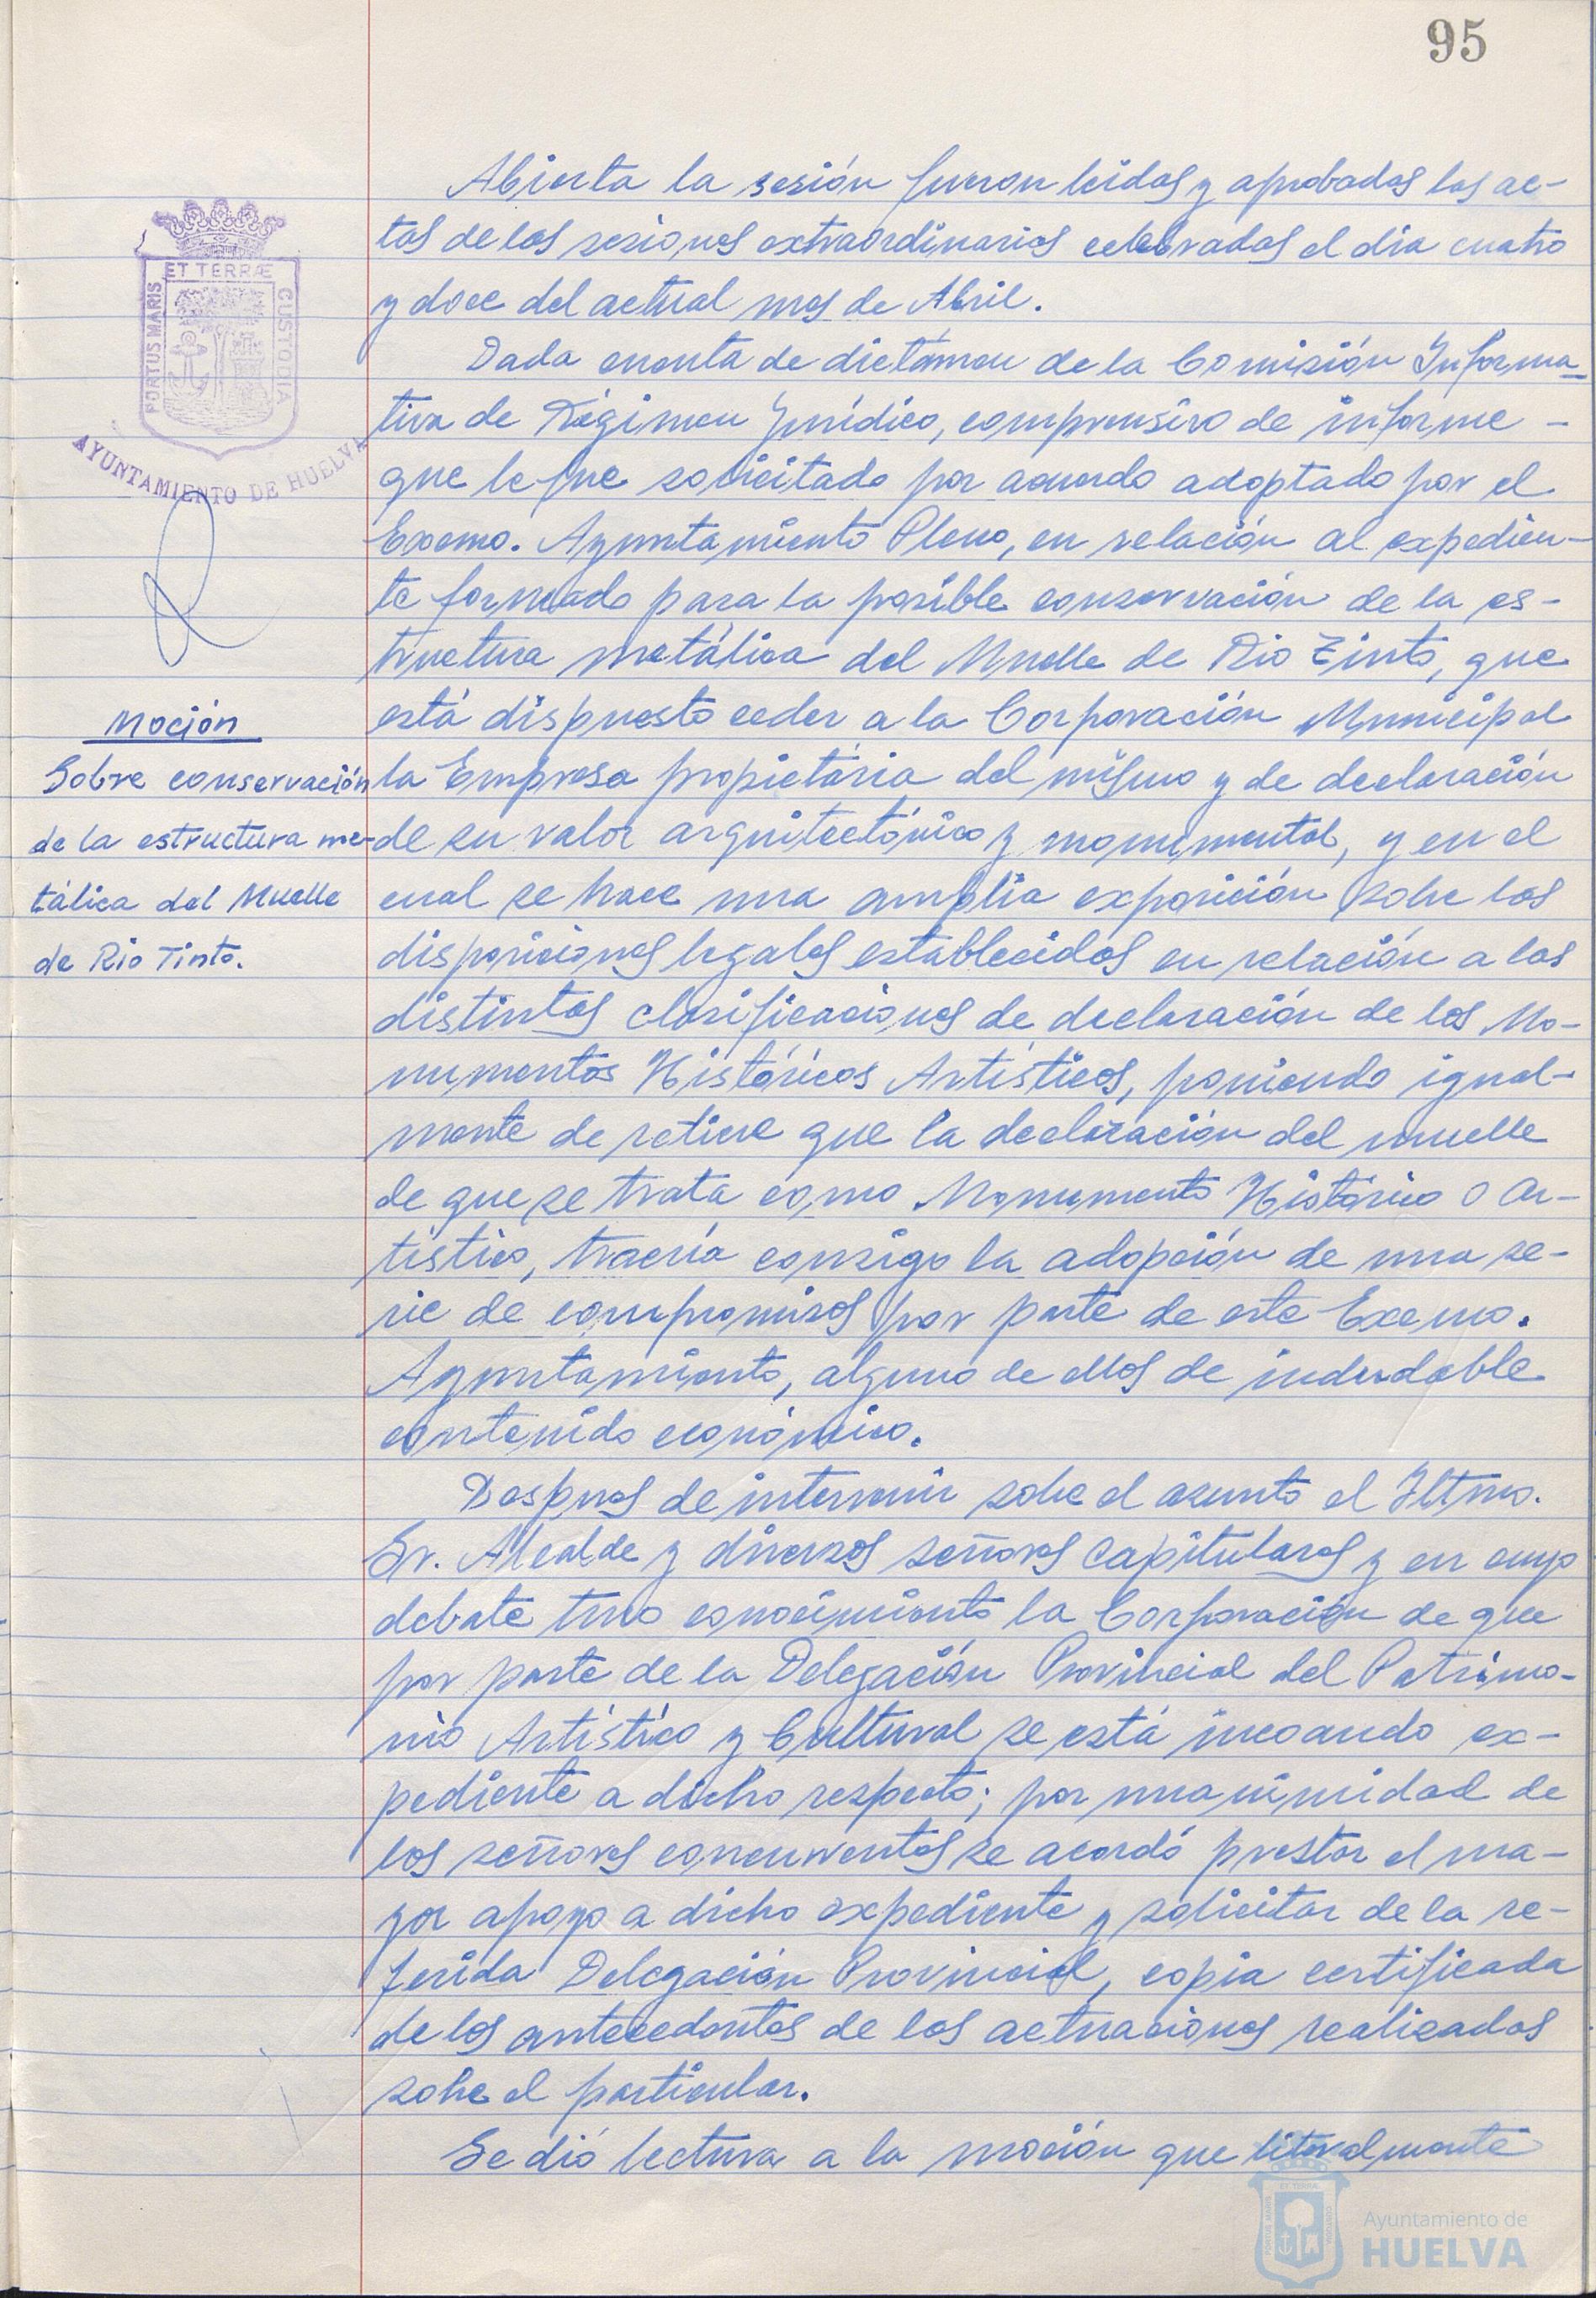 95
Abierta la sesión fueron leidas y aprobadas las ac-
tas de las sesiones extraordinarias celebradas el dia cuatro
y doce del actual mes de Abril.
Dada cuenta de dictámen de la Comisión Informa-
tiva de Régimen Jurídico, comprensivo de informe -
que le fue solicitado por acuerdo adoptado por el
Excmo. Ayuntamiento Pleno, en relación al expedien-
te formado para la posible conservación de la es-
tructura metálica del Muelle de Rio Tinto, que
está dispuesto ceder a la Corporación Municipal
la Empresa propietaria del mismo y de declaración
de su valor arquitectónico y monumental, y en el
cual se hace una amplia exposición sobre las
disposiciones legales establecidas en relación a las
distintas clasificaciones de declaración de los Mo-
numentos Históricos Artísticos, poniendo igual-
mente de relieve que la declaración del muelle
de que se trata como Monumento Histórico o Ar-
tístico, traería consigo la adopción de una se-
rie de compromisos por parte de este Excmo.
Ayuntamiento, alguno de ellos de indudable
contenido económico.
Despues de intervenir sobre el asunto el Iltmo.
Sr. Alcalde y diversos señores capitulares y en cuyo
debate tuvo conocimiento la Corporación de que
por parte de la Delegación Provincial del Patrimo-
nio Artístico y Cultural se está incoando ex-
pediente a dicho respecto; por unanimidad de
los señores concurrentes se acordó prestar el ma-
yor apoyo a dicho expediente y solicitar de la re-
ferida Delegación Provincial, copia certificada
de los antecedentes de las actuaciones realizadas
sobre el particular.
Se dió lectura a la moción que literalmente
PORTUS MARIS
ET TERRÆ
CUSTODIA
AYUNTAMIENTO DE HUELVA
Moción
Sobre conservación
de la estructura me-
tálica del Muelle
de Rio Tinto.
Ayuntamiento de
HUELVA